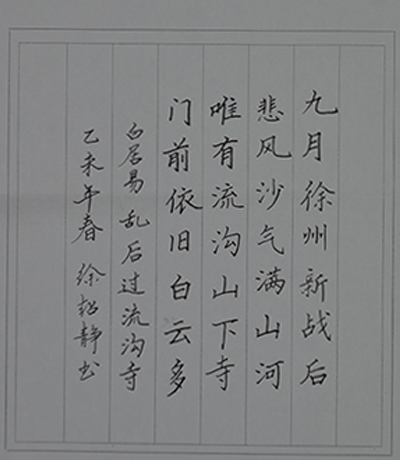 九月徐州新战后
悲风沙气满山河
唯有流沟山下寺
门前依旧白云多
白居易 乱后过流沟寺
乙未年春 徐韬静书